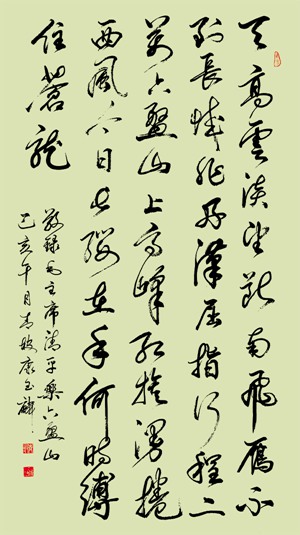 天高雲淡望斷南飛雁不
到長城非好漢屈指行程二
萬六盤山上高峰紅旗漫捲
西風今日長纓在手何時縛
住蒼龍
敬録毛主席清平樂六盤山
己亥午月